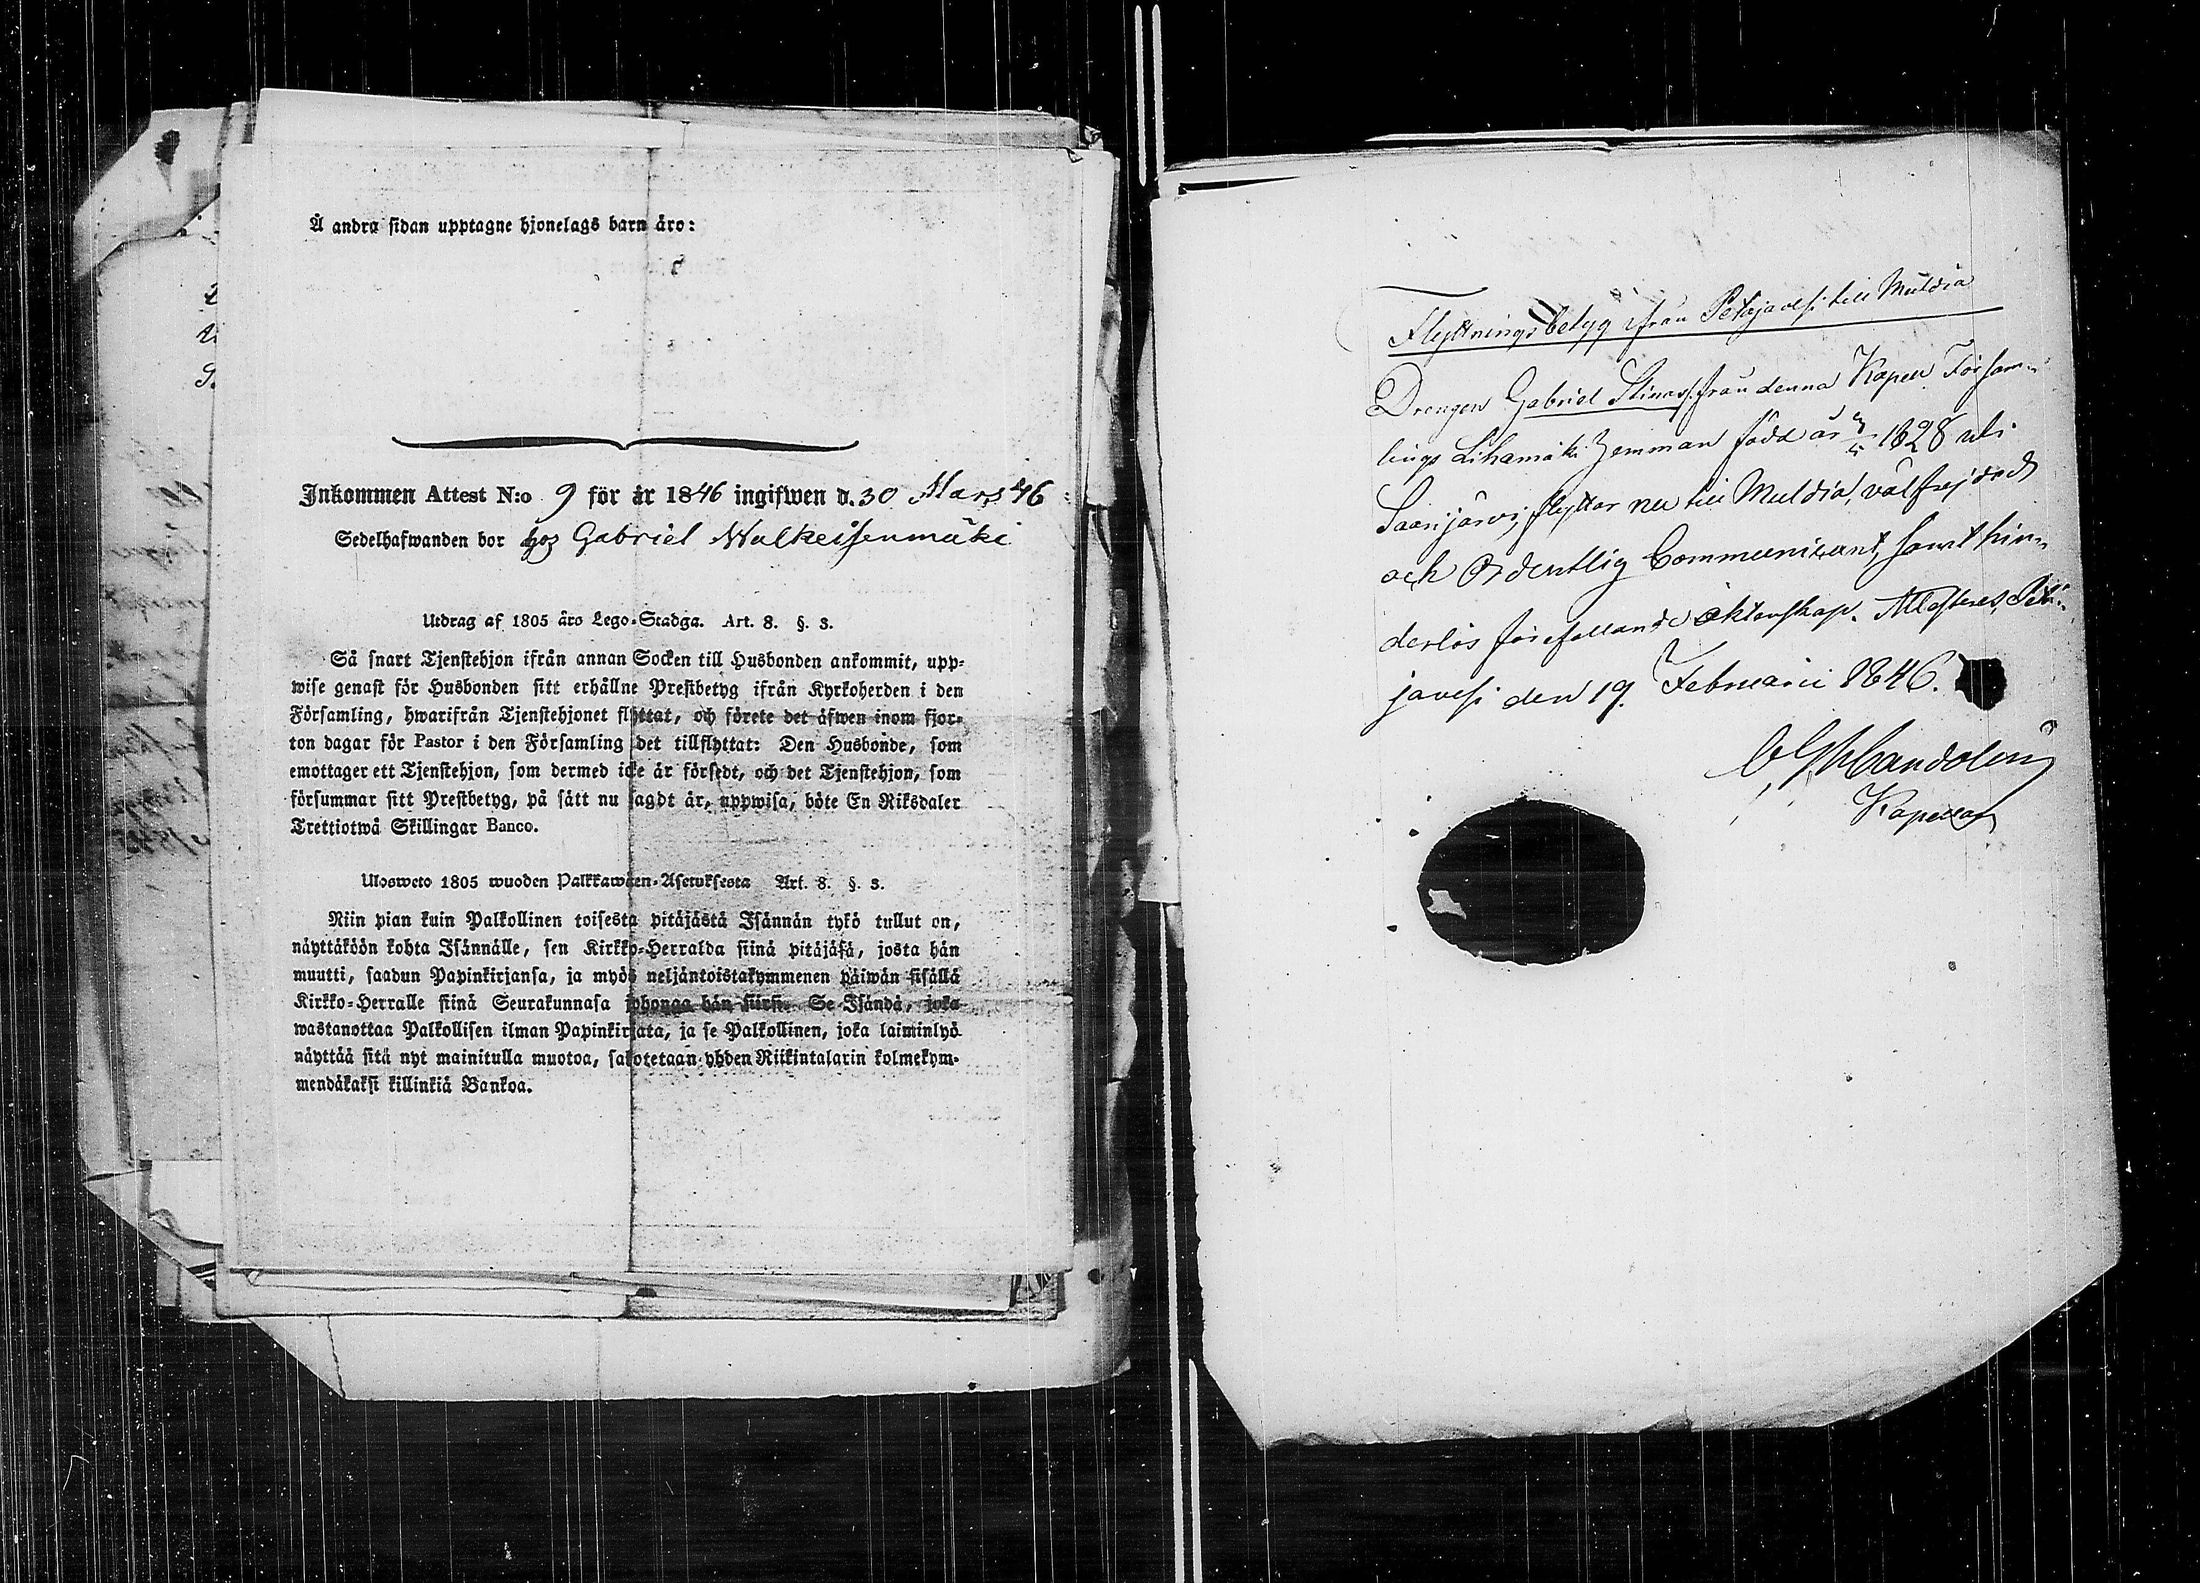 Å andra sidan upptagne hjonelags barn äro:
Inkommen Attest N:o 9 för år 1846 ingifwen d. 30 Mars 46
Sedelhafwanden bor hos Gabriel Mulkeisenmäki
Utdrag af 1805 års Lego-Stadga. Art. 8. §. 3.
Så snart Tjenstehjon ifrån annan Socken till Husbonden ankommit, upp-
wise genast för Husbonden sitt erhållne Prestbetyg ifrån Kyrkoherden i den
Församling, hwarifrån Tjenstehjonet flyttat, och förete det äfwen inom fjor-
ton dagar för Pastor i den Församling det tillflyttat: Den Husbonde, som
emottager ett Tjenstehjon, som dermed icke är försedt, och det Tjenstehjon, som
försummar sitt Prestbetyg, på sätt nu sagdt är, uppwisa, böte En Riksdaler
Trettiotwå Skillingar Banco.
Ulosweto 1805 wuoden Palkkawäen-Asetuksesta Art. 8. §. 3.
Niin pian kuin Palkollinen toisesta pitäjästä Isännän tykö tullut on,
näyttäköön kohta Isännälle, sen Kirkko-Herralda siinä pitäjäsä, josta hän
muutti, saadun Papinkirjansa, ja myös neljäntoistakymmenen päiwän sisällä
Kirkko-Herralle siinä Seurakunnasa johonga hän siirsi. Se Isändä, joka
wastanottaa Palkollisen ilman Papinkirjata, ja se Palkollinen, joka laiminlyö
näyttää sitä nyt mainitulla muotoa, sakotetaan yhden Riikintalarin kolmekym-
mendäkaksi killinkiä Bankoa.
Flyttningsbetyg ifrån Petäjävesi till Muldia
Drengen Gabriel Stinas. från denna Kapell Försam-
lings Lihamäki hemman född år 1828 uti
Saarijärvi, flyttar nu till Muldia, välfrejdad
och Ordentlig Communicant, samt hin-
derlös förefallande äktenskap. Attesteras, Petä-
jävesi den 19. Februarii 1846.
Kapellan